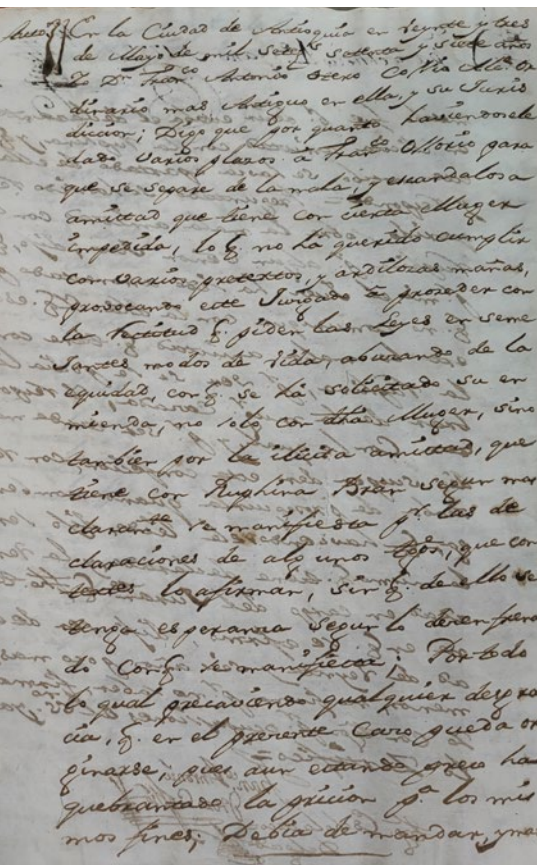 Auto En la Ciudad de Antioquia en veynte y tres
de Mayo de mil setecs settenta y siete años
Dn Franco Antonio Otero Cossio Alce Or
dinario mas Antiguo en ella, y su Juris
diccion; Digo que por quanto haviendosele
dado varios plazos â Franco Ossorio para
que se separe de la mala, y escandalosa
amistad que tiene con cierta Muger
impedida, lo q. no ha querido cumplir
con varios pretextos, y ardilosas mañas,
provocando este Juzgado â proseder con
la rectitud q. piden las Leyes en seme
Jantes modos de vida, abusando de la
equidad, con q. se ha solicitado su en
mienda, no solo con dha Muger, sino
tambien por la ilicita amistad, que
tiene con Ruphina segun mas
claramte se manifiesta pr las de
claraciones de algunos tgos, que con
testes lo afirman, sin q. de ello se
tenga esperanza segun lo desenfrena
do con q. se manifiesta; Por todo
lo qual precaviendo qualquier desgra
cia, q. en el presente Caso pueda or
ginarse, pues aun estando preso ha
quebrantado la pricion pa los mis
mos fines; Debia de mandar, y